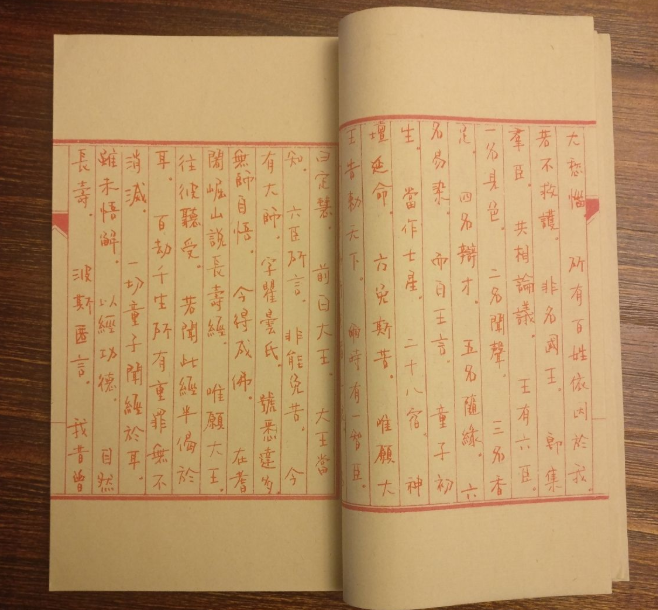 大愁惱。所有百姓依因於我。
若不救護。非名國王。即集
羣臣。共相論議。王有六臣。
一名見色。二名聞聲。三名香
足。四名辯才。五名隨緣。六
名易染。而白王言。童子初
生。當作七星。二十八宿。神
壇延命。方免斯苦。唯願大
王告勅天下。爾時有一智臣。
曰定慧。前白大王。大王當
知。六臣所言。非能免苦。今
有大師。字瞿曇氏。號悉達多
無師自悟。今得成佛。在耆
闍崛山說長壽經。唯願大王。
往彼聽受。若聞此經半偈於
耳。百劫千生所有重罪無不
消滅。一切童子聞經於耳。
雖未悟解。以經功德。自然
長壽。波斯匿言。我昔曾